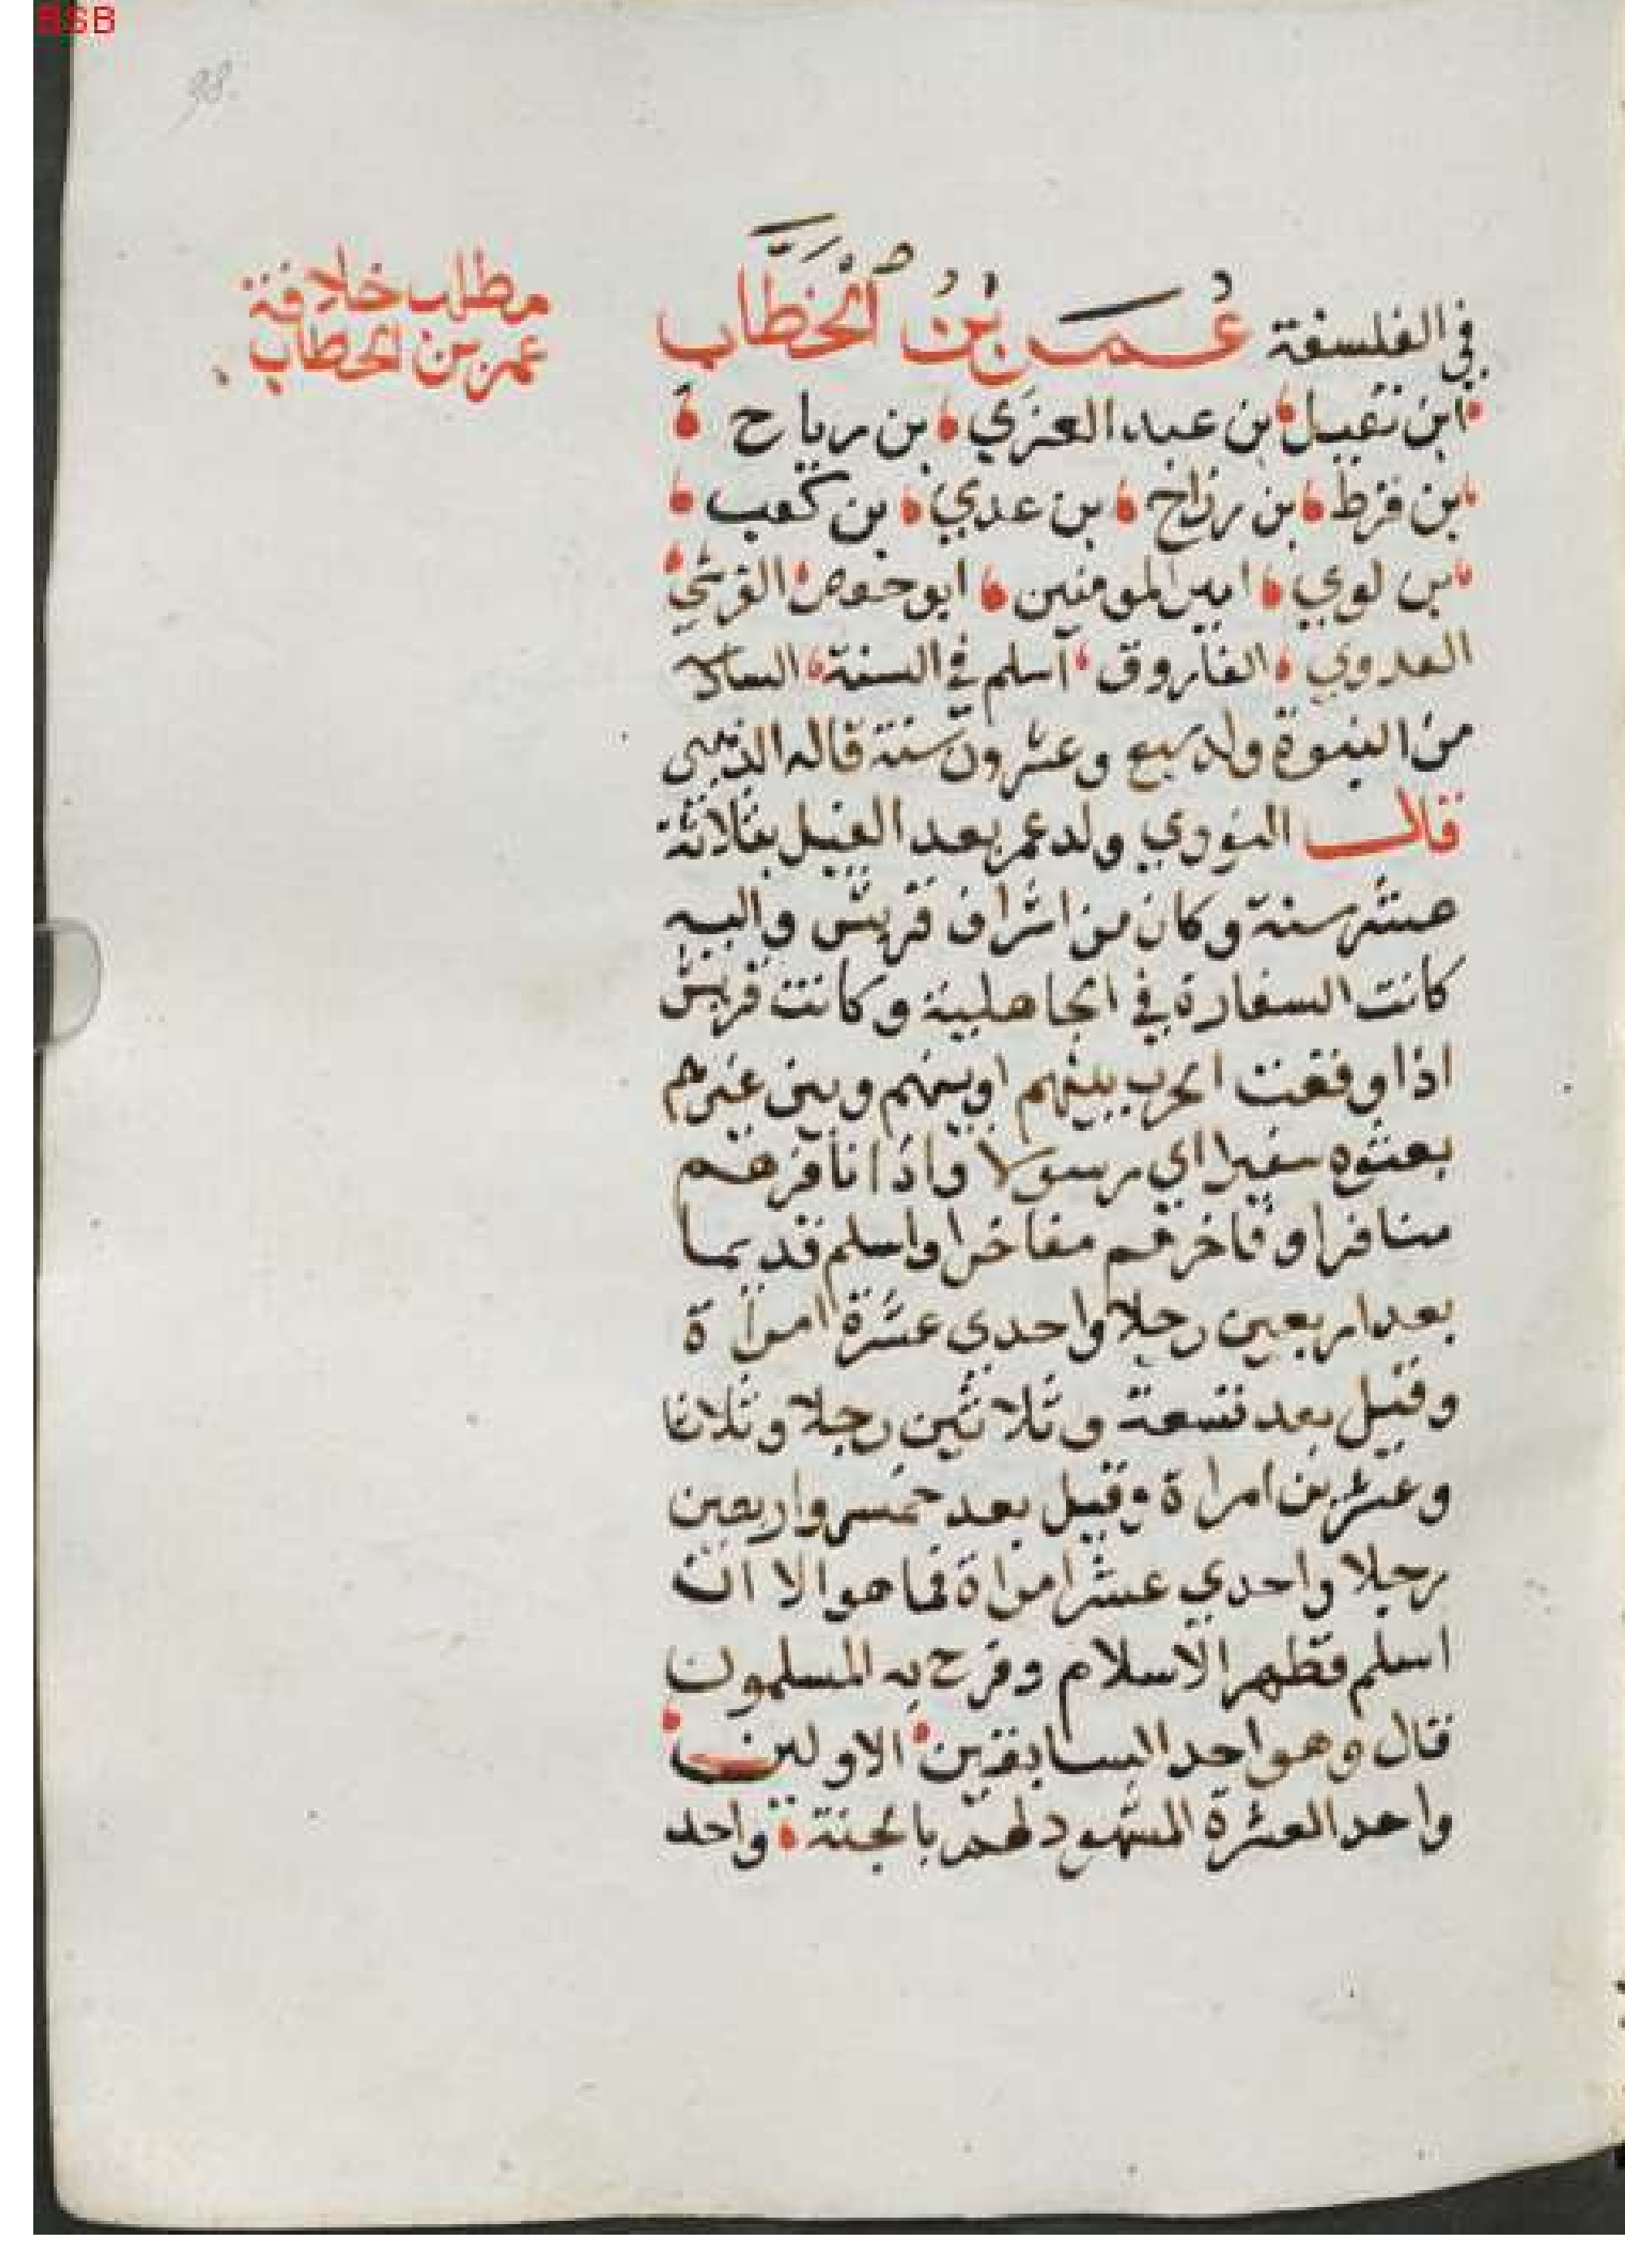 BSB
98.
مطلب خلافة
عمر بن الخطاب
في الفلسفة عُمَر بْنُ الْخَطَّاب
ابن نفيل بن عبد العزي بن رياح
بن قرط بن رزاخ بن عدي بن كعب
بن لوي امير المومنين ابو حفص القرشي
العدوي الفاروق اسلم في السنة السادسة
من النبوة وله سبع وعشرون سنة قاله الذهبي
قال النووي ولد عمر بعد الفيل بثلاثة
عشر سنة وكان من اشراف قريش واليه
كانت السفارة في الجاهلية وكانت قريش
اذا وقعت الحرب بينهم اوبينهم وبين غيرهم
بعثوه سفيرا اي رسولا واذا نافرهم
منافرا وفاخرهم مفاخرا واسلم قديما
بعد اربعين رجلا واحدي عشرة امراة
وقيل بعد تسعة وثلاثين رجلا وثلاثا
وعشرين امراة وقيل بعد خمس واربعين
رجلا واحدي عشر امراة فما هو الا ان
اسلم فظهر الاسلام وفرح به المسلمون
قال وهو احد السابقين الاولين
واحد العشرة المشهود لهم بالجنة واحد